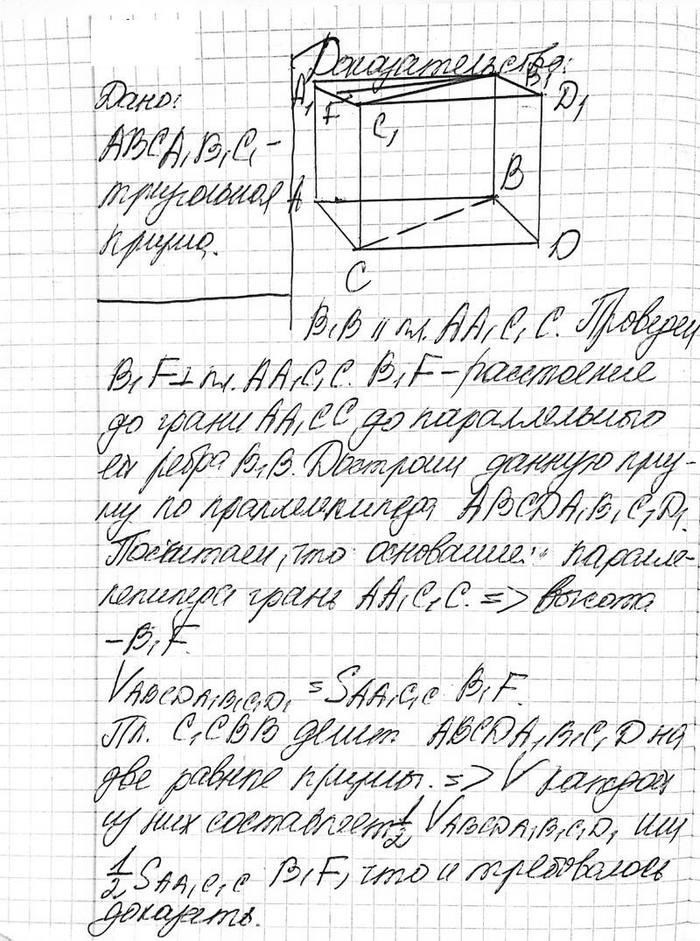 Доказательство:
Дано:
ABCA₁B₁C₁ –
треугольная
призма.
A₁
B₁
D₁
F
C₁
A
B
C
D
B₁B || пл. AA₁C₁C. Проведем
B₁F⊥ пл. AA₁C₁C. B₁F – расстояние
до грани AA₁CC до параллельного
ей ребра B₁B. Достроим данную приз-
му по праллелепипеда ABCDA₁B₁C₁D₁.
Посчитаем, что основание паралле-
лепипеда грань AA₁C₁C. => высота
– B₁F.
V ABCDA₁B₁C₁D₁ = S AA₁C₁C B₁F.
Пл. C₁CBB делит ABCDA₁B₁C₁D на
две равные призмы. => V каждой
из них составляет 1/2 V ABCDA₁B₁C₁D₁ или
1/2 S AA₁C₁C B₁F, что и требовалось
доказать.